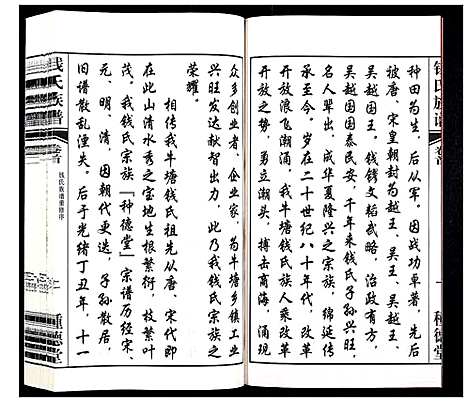 钱氏族谱
卷首
一
种德堂
种田为生。后从军。因战功卓著，先后
被唐、宋皇朝封为越王、吴王、吴越王、
吴越国王。钱镠文韬武略，治政有方，
吴越国国泰民安，千年来钱氏子孙兴旺，
名人辈出，成华夏隆兴之宗族，绵延传
承至今。岁在二十世纪八十年代，改革
开放浪飞潮涌，我牛塘钱氏族人乘改革
开放之势，勇立潮头，搏击商海，涌现
众多创业者、企业家，为牛塘乡镇工业
兴旺发达献智出力，此乃我钱氏宗族之
荣耀。
相传我牛塘钱氏祖先从唐、宋代即
在此山清水秀之宝地生根繁衍，枝繁叶
茂。我钱氏宗族「种德堂」宗谱历经宋、
元、明、清，因朝代更迭，子孙散居，
旧谱散乱湮失。后于光绪丁丑年，十一
钱氏族谱
卷首
钱氏族谱重修序
种德堂